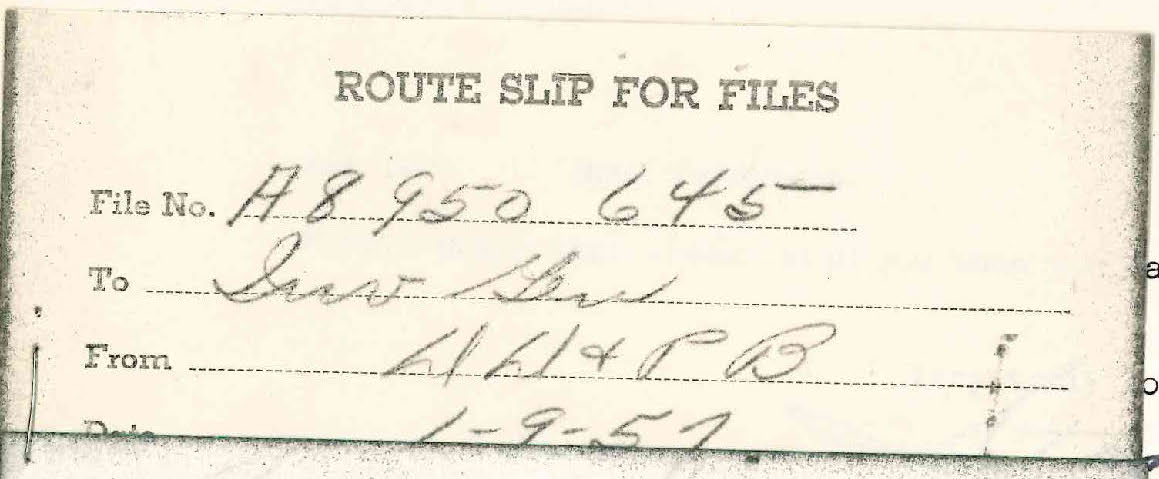 ROUTE SLIP FOR FILES
File No. A8 950 645
To Inv Gen
From & P B
Date 1-9-57
a
o